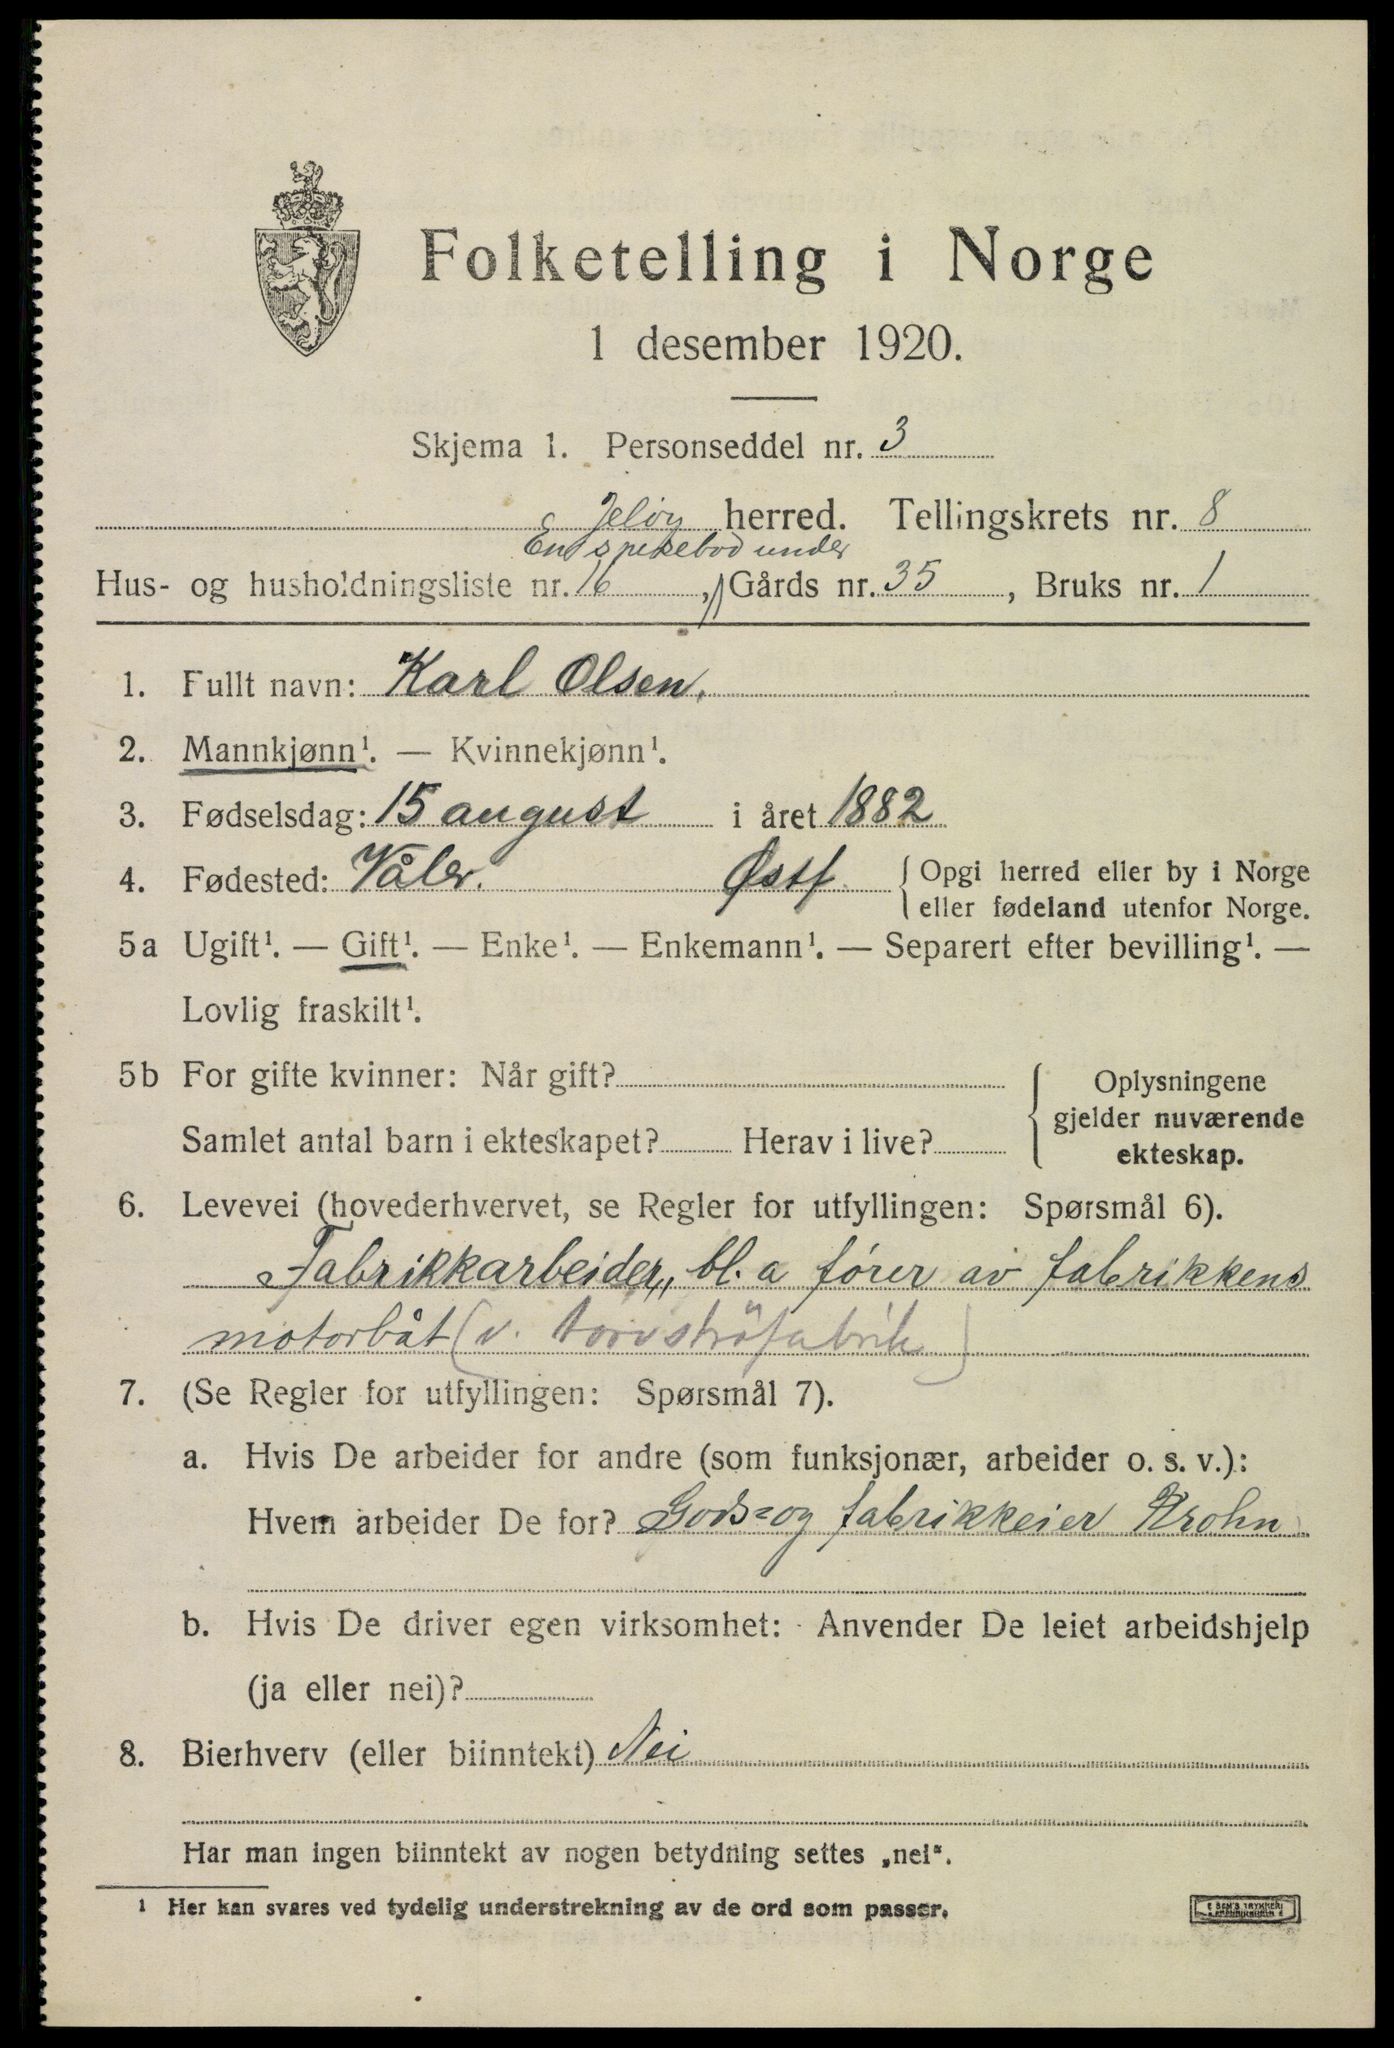 Folketelling i Norge
1 desember 1920.
Skjema 1. Personseddel nr. 3
Jeløy herred. Tellingskrets nr. 8
En spisebod under
Hus- og husholdningsliste nr. 16, Gårds nr. 35, Bruks nr. 1
1. Fullt navn: Karl Olsen.
2. Mannkjønn¹. — Kvinnekjønn¹.
3. Fødselsdag: 15 august i året 1882
4. Fødested: Våler. Østf. Opgi herred eller by i Norge
eller fødeland utenfor Norge.
5a Ugift¹. — Gift¹. — Enke¹. — Enkemann¹. — Separert efter bevilling¹. —
Lovlig fraskilt¹.
5b For gifte kvinner: Når gift? Oplysningene
gjelder nuværende
Samlet antal barn i ekteskapet? Herav i live?
ekteskap.
6. Levevei (hovederhvervet, se Regler for utfyllingen: Spørsmål 6).
Fabrikkarbeider, bl. a fører av fabrikkens
motorbåt (v. torvströfabrik)
7. (Se Regler for utfyllingen: Spørsmål 7).
a. Hvis De arbeider for andre (som funksjonær, arbeider o. s. v.):
Hvem arbeider De for? Gods- og fabrikkeier Krohn
b. Hvis De driver egen virksomhet: Anvender De leiet arbeidshjelp
(ja eller nei)?
8. Bierhverv (eller biinntekt) Nei
Har man ingen biinntekt av nogen betydning settes „nei“.
¹ Her kan svares ved tydelig understrekning av de ord som passer.